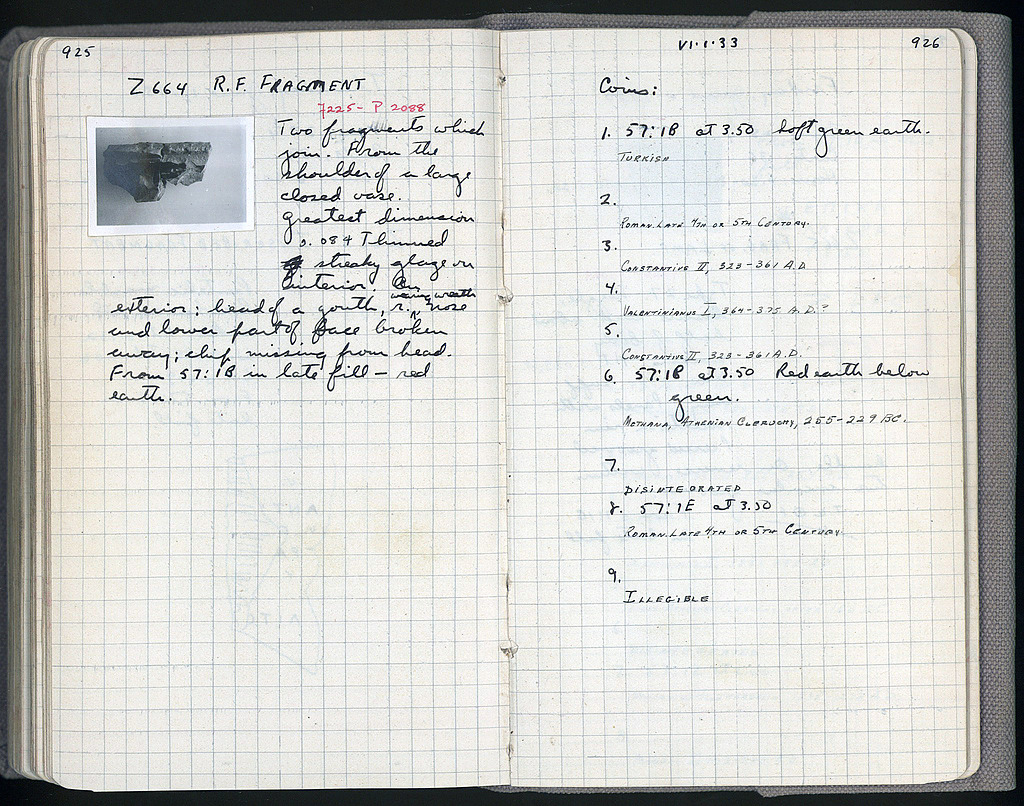 925
Z 664 R.F. FRAGMENT
7225 - P 2088
Two fragments which
join. From the
shoulder of a large
closed vase.
Greatest dimension
0.084 Thinned
streaky glaze on
interior. On
exterior: head of a youth, wearing wreath r.; nose
and lower part of face broken
away; chip missing from head.
From 57:1B in late fill – red
earth.
VI·1·33
926
Coins:
1. 57:1B at 3.50 Soft green earth.
TURKISH
2.
ROMAN. LATE 4TH OR 5TH CENTURY.
3.
CONSTANTIUS II, 323-361 A.D.
4.
VALENTINIANUS I, 364-375 A.D.?
5.
CONSTANTIUS II, 323-361 A.D.
6. 57:1B at 3.50 Red earth below
green.
METHANA, ATHENIAN CLERUCHY, 255-229 BC.
7.
DISINTEGRATED
8. 57:1E at 3.50
ROMAN. LATE 4TH OR 5TH CENTURY.
9.
ILLEGIBLE